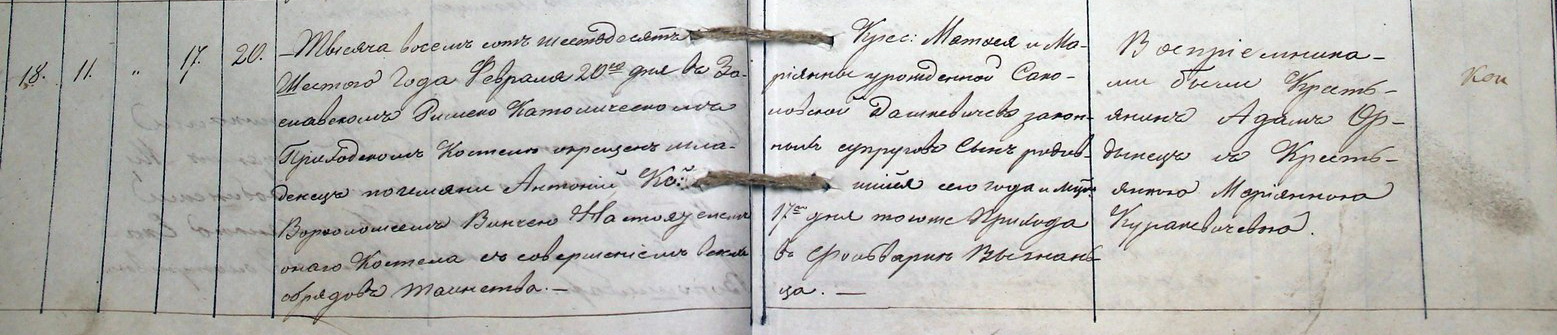 18. 11. " 17. 20.
Тысяча восемь сотъ шестьдесятъ
Шестого Года Февраля 20го дня въ За-
славскомъ Римско Католическомъ
Приходскомъ Костелѣ окрещенъ мла-
денецъ по имени Антоній
Винчею Настоятелемъ
онаго Костела съ совершеніемъ всехъ
обрядовъ таинства. —
Крес: Матвея и Ма-
ріянны урожденной Сако-
ловской Дашкевичевъ закон-
ныхъ супруговъ Сынъ родив-
шійся сего года и Мца
17го дня тогоже Прихода
въ Фольварке Выгнань-
ца. —
Воспріемника-
ми были Кресть-
янинъ Адамъ Ор-
дынецъ съ Кресть-
янкою Маріянною
Кураневичевною.